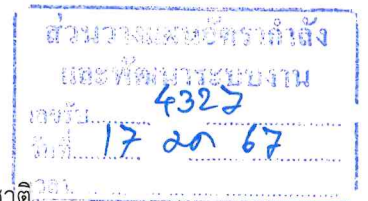 ส่วนวางแผนอัตรากำลัง
และพัฒนาระบบงาน
เลขรับ 4327
วันที่ 17 ตค 67
เวลา
ชาติ